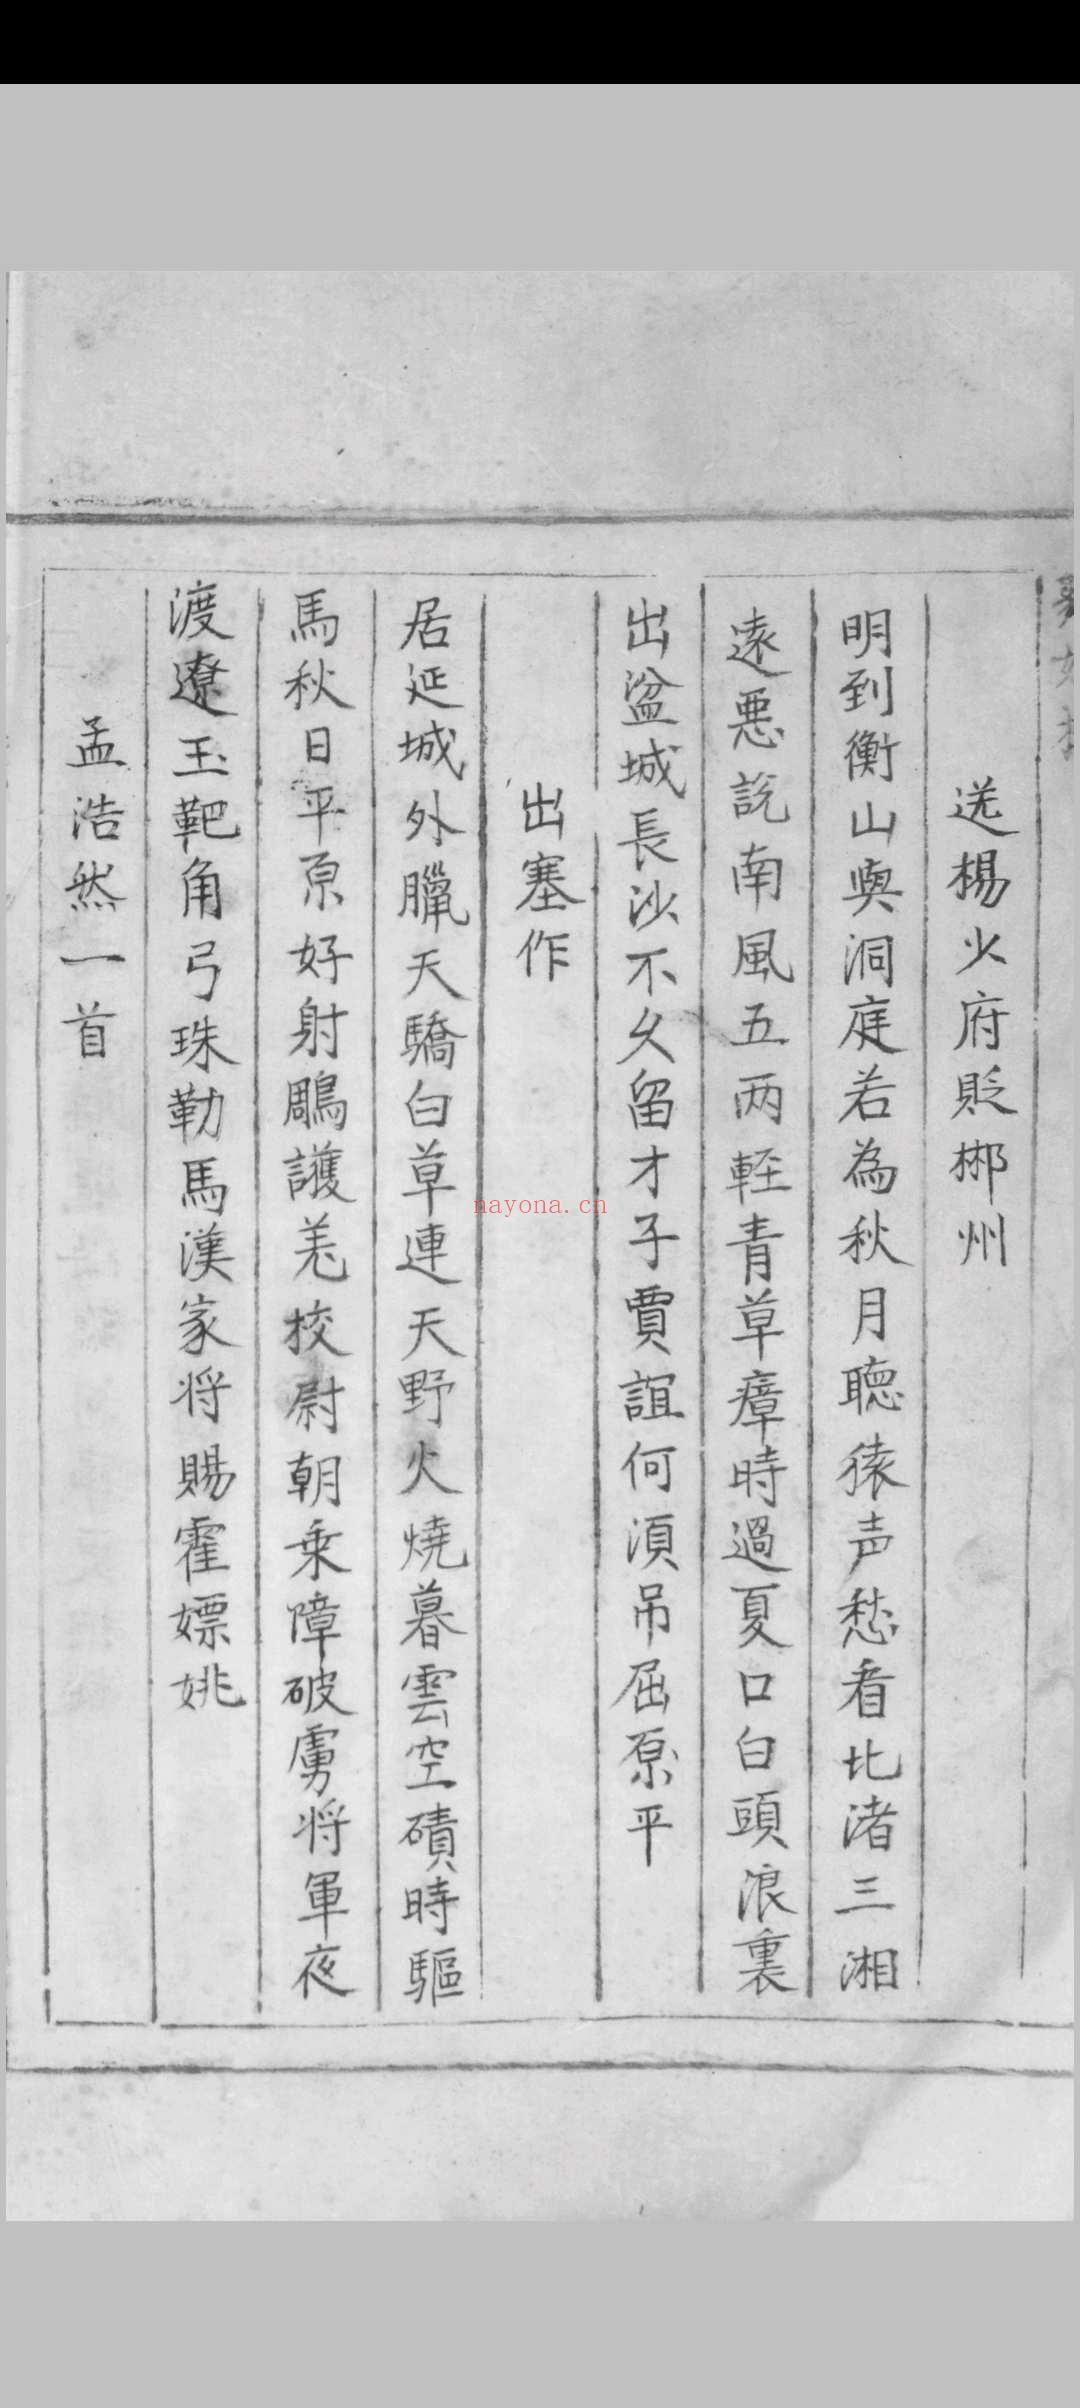 送楊少府貶郴州
明到衡山與洞庭若為秋月聽猿声愁看北渚三湘
遠悪説南風五両軽青草瘴時過夏口白頭浪裏
出湓城長沙不久留才子賈誼何須吊屈原平
出塞作
居延城外獵天驕白草連天野火燒暮雲空磧時驅
馬秋日平原好射鵰護羌校尉朝乗障破虜将軍夜
渡遼玉靶角弓珠勒馬漢家将賜霍嫖姚
孟浩然一首
nayona.cn